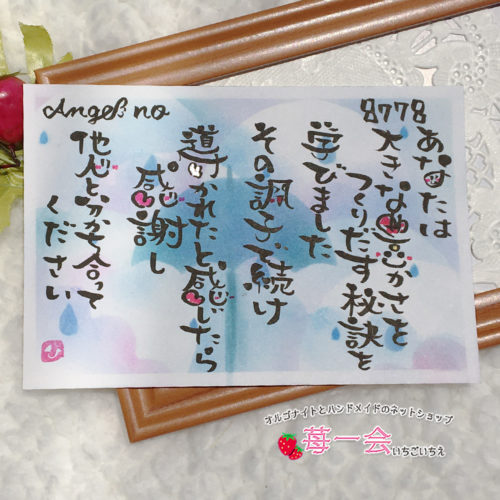 Angel's no 8778
あなたは
大きな豊かさを
つくりだす秘訣を
学びました
その調子で続け
導かれたと感じたら
感謝し
他人と分かち合って
ください
オルゴナイトとハンドメイドのネットショップ
苺一会 いちごいちえ